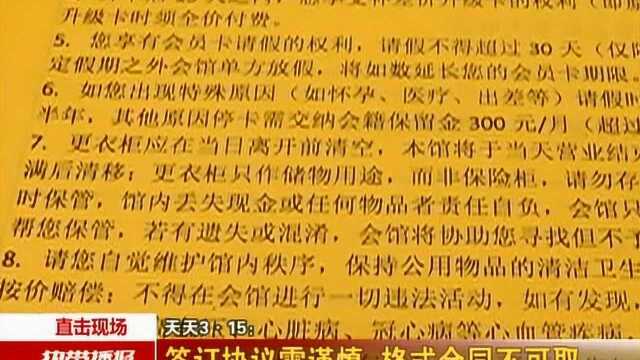 升级卡时须全价付费。
5. 您享有会员卡请假的权利，请假不得超过 30 天（仅限
定假期之外会馆单方放假，将如数延长您的会员卡期限。
6. 如您出现特殊原因（如怀孕、医疗、出差等）请假时
半年，其他原因停卡需交纳会籍保留金 300 元/月（超过
7. 更衣柜应在当日离开前清空，本馆将于当天营业结
满后清移；更衣柜只作储物用途，而非保险柜，请勿存
时保管，馆内丢失现金或任何物品者责任自负，会馆只
帮您保管，若有遗失或混淆，会馆将协助您寻找但不
8. 请您自觉维护馆内秩序，保持公用物品的清洁卫生
按价赔偿；不得在会馆进行一切违法活动，如有发现，
心脏病、冠心病等心血管疾
直击现场
天天3·15：
热带播报
签订协议需谨慎 格式合同不可取